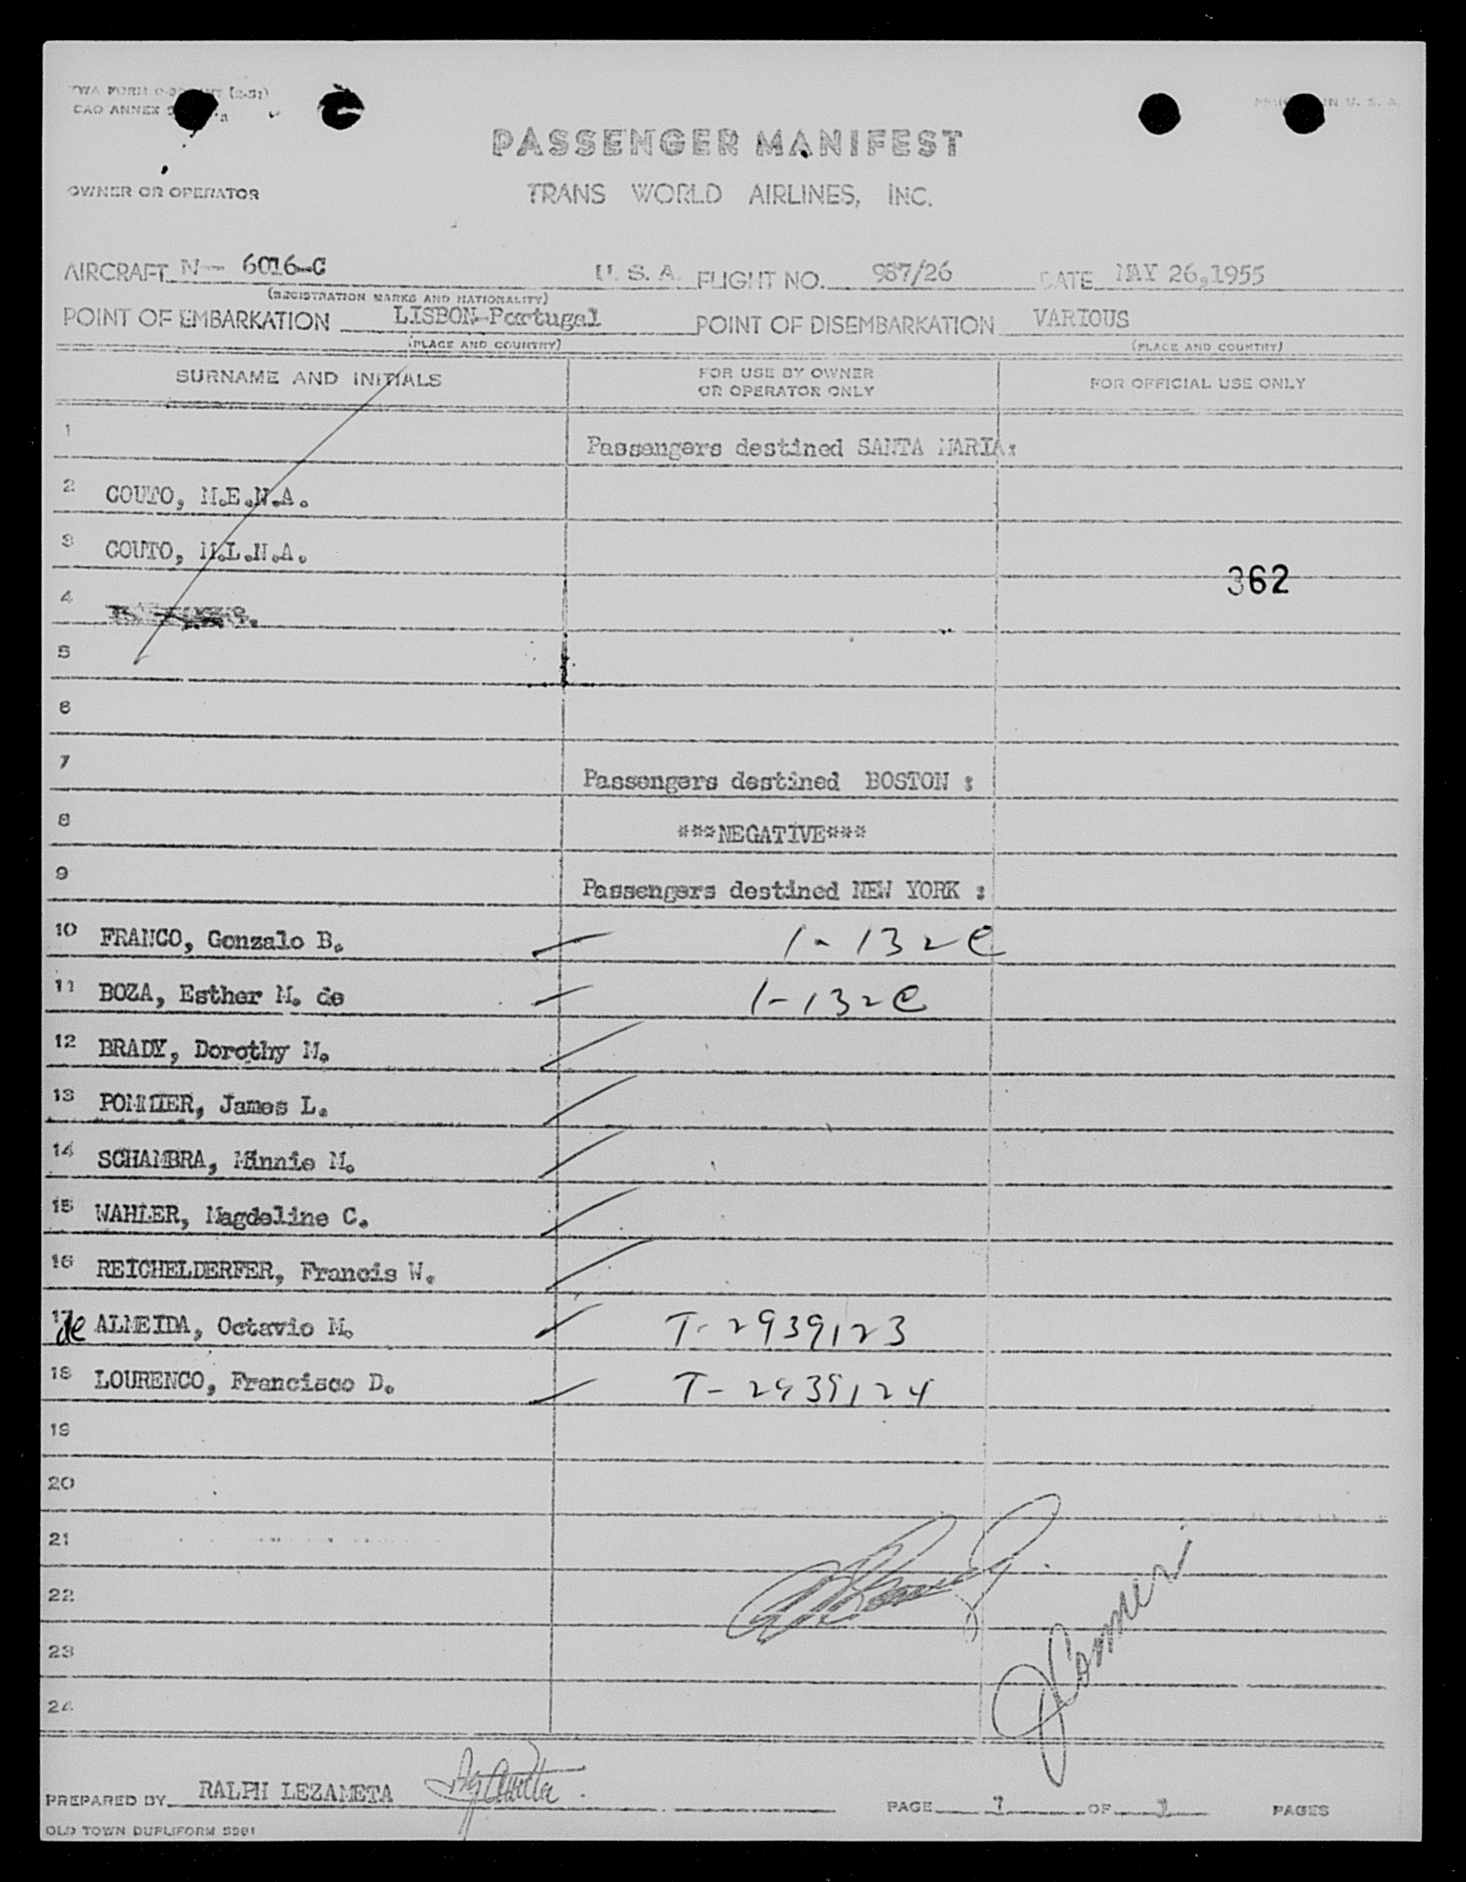 PASSENGER MANIFEST
OWNER OR OPERATOR TRANS WORLD AIRLINES, INC.
AIRCRAFT N- 6016-C U. S. A. FLIGHT NO. 967/26 DATE MAY 26,1955
(REGISTRATION MARKS AND NATIONALITY)
POINT OF EMBARKATION LISBON-Portugal POINT OF DISEMBARKATION VARIOUS
(PLACE AND COUNTRY) (PLACE AND COUNTRY)
SURNAME AND INITIALS FOR USE BY OWNER OR OPERATOR ONLY FOR OFFICIAL USE ONLY
1 Passengers destined SANTA MARIA:
2 COUTO, M.E.N.A.
3 COUTO, M.L.N.A.
362
4
5
6
7 Passengers destined BOSTON :
8 ***NEGATIVE***
9 Passengers destined NEW YORK :
10 FRANCO, Gonzalo B. 1-132e
11 BOZA, Esther M. de 1-132e
12 BRADY, Dorothy M.
13 POMMIER, James L.
14 SCHAMBRA, Minnie M.
15 WAHLER, Magdeline C.
16 REICHELDERFER, Francis W.
17 de ALMEIDA, Octavio M. T-2939123
18 LOURENCO, Francisco D. T-2939124
19
20
21
22
23
24
PREPARED BY RALPH LEZAMETA PAGE OF PAGES
OLD TOWN DUPLIFORM